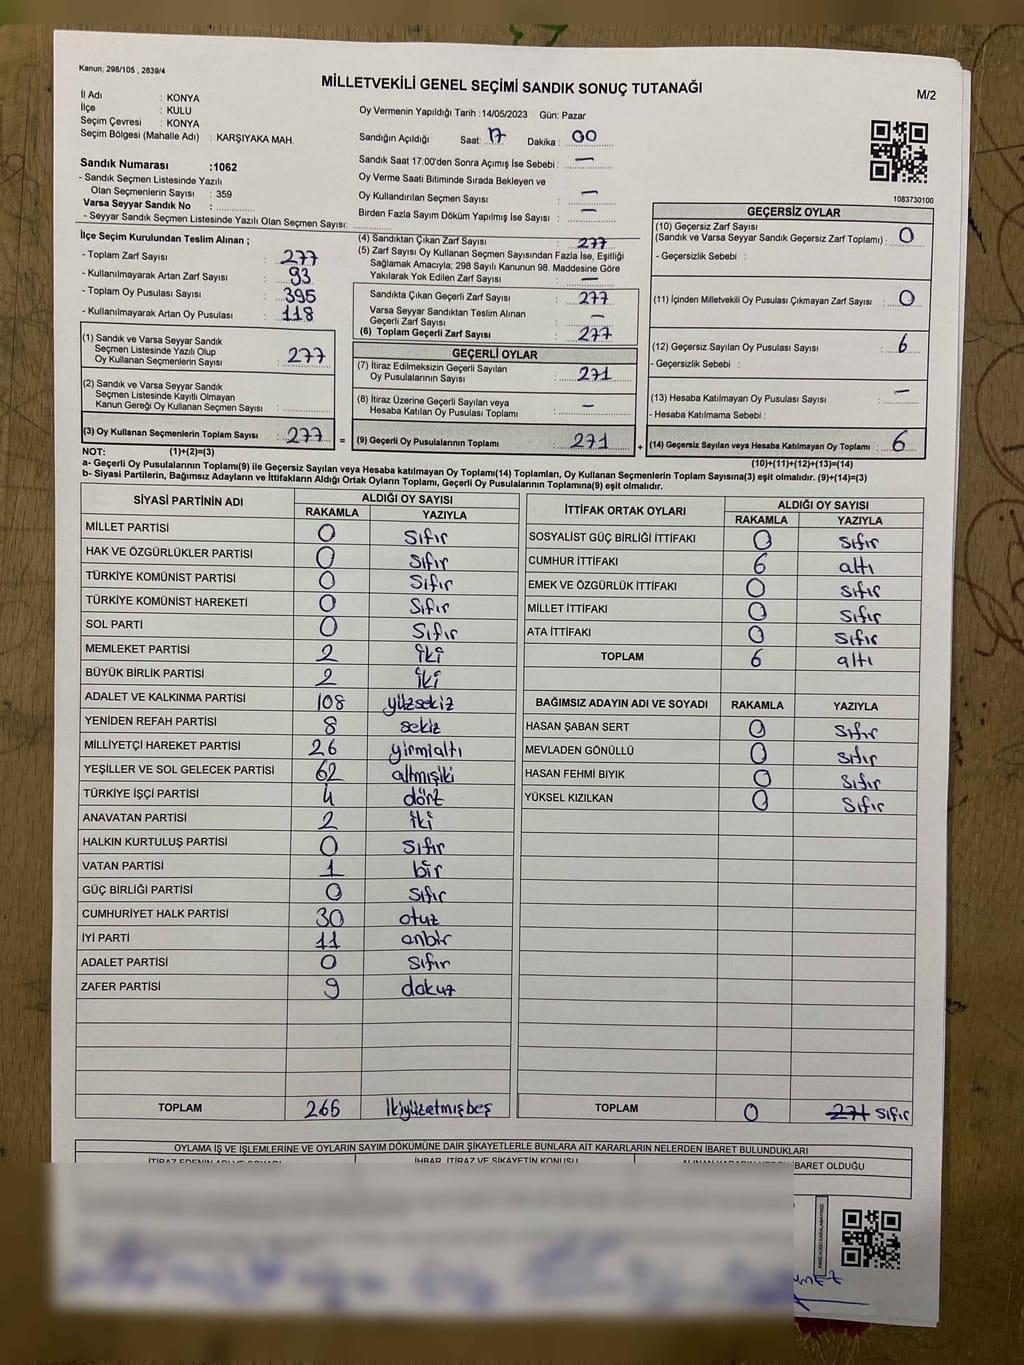 Kanun; 298/105 , 2839/4
MİLLETVEKİLİ GENEL SEÇİMİ SANDIK SONUÇ TUTANAĞI
M/2
İl Adı : KONYA
İlçe : KULU
Seçim Çevresi : KONYA
Seçim Bölgesi (Mahalle Adı) : KARŞIYAKA MAH.
Sandık Numarası :1062
- Sandık Seçmen Listesinde Yazılı
Olan Seçmenlerin Sayısı : 359
Varsa Seyyar Sandık No :
- Seyyar Sandık Seçmen Listesinde Yazılı Olan Seçmen Sayısı:
Oy Vermenin Yapıldığı Tarih :14/05/2023 Gün: Pazar
Sandığın Açıldığı Saat: 17 Dakika : 00
Sandık Saat 17:00'den Sonra Açımış İse Sebebi : —
Oy Verme Saati Bitiminde Sırada Bekleyen ve
Oy Kullandırılan Seçmen Sayısı : —
Birden Fazla Sayım Döküm Yapılmış İse Sayısı : —
1083730100
İlçe Seçim Kurulundan Teslim Alınan ;
- Toplam Zarf Sayısı : 277
- Kullanılmayarak Artan Zarf Sayısı : 93
- Toplam Oy Pusulası Sayısı : 395
- Kullanılmayarak Artan Oy Pusulası : 118
(1) Sandık ve Varsa Seyyar Sandık
Seçmen Listesinde Yazılı Olup
Oy Kullanan Seçmenlerin Sayısı : 277
(2) Sandık ve Varsa Seyyar Sandık
Seçmen Listesinde Kayıtlı Olmayan
Kanun Gereği Oy Kullanan Seçmen Sayısı :
(3) Oy Kullanan Seçmenlerin Toplam Sayısı : 277 =
(4) Sandıktan Çıkan Zarf Sayısı : 277
(5) Zarf Sayısı Oy Kullanan Seçmen Sayısından Fazla İse, Eşitliği
Sağlamak Amacıyla; 298 Sayılı Kanunun 98. Maddesine Göre
Yakılarak Yok Edilen Zarf Sayısı : —
Sandıkta Çıkan Geçerli Zarf Sayısı : 277
Varsa Seyyar Sandıktan Teslim Alınan
Geçerli Zarf Sayısı : —
(6) Toplam Geçerli Zarf Sayısı : 277
GEÇERLİ OYLAR
(7) İtiraz Edilmeksizin Geçerli Sayılan
Oy Pusulalarının Sayısı : 271
(8) İtiraz Üzerine Geçerli Sayılan veya
Hesaba Katılan Oy Pusulası Toplamı : —
(9) Geçerli Oy Pusulalarının Toplamı : 271 +
GEÇERSİZ OYLAR
(10) Geçersiz Zarf Sayısı
(Sandık ve Varsa Seyyar Sandık Geçersiz Zarf Toplamı) : 0
- Geçersizlik Sebebi :
(11) İçinden Milletvekili Oy Pusulası Çıkmayan Zarf Sayısı : 0
(12) Geçersiz Sayılan Oy Pusulası Sayısı : 6
- Geçersizlik Sebebi :
(13) Hesaba Katılmayan Oy Pusulası Sayısı : —
- Hesaba Katılmama Sebebi :
(14) Geçersiz Sayılan veya Hesaba Katılmayan Oy Toplamı : 6
NOT: (1)+(2)=(3)
(10)+(11)+(12)+(13)=(14)
a- Geçerli Oy Pusulalarının Toplamı(9) ile Geçersiz Sayılan veya Hesaba katılmayan Oy Toplamı(14) Toplamları, Oy Kullanan Seçmenlerin Toplam Sayısına(3) eşit olmalıdır. (9)+(14)=(3)
b- Siyasi Partilerin, Bağımsız Adayların ve İttifakların Aldığı Ortak Oyların Toplamı, Geçerli Oy Pusulalarının Toplamına(9) eşit olmalıdır.
SİYASİ PARTİNİN ADI ALDIĞI OY SAYISI
RAKAMLA YAZIYLA
MİLLET PARTİSİ 0 Sıfır
HAK VE ÖZGÜRLÜKLER PARTİSİ 0 Sıfır
TÜRKİYE KOMÜNİST PARTİSİ 0 Sıfır
TÜRKİYE KOMÜNİST HAREKETİ 0 Sıfır
SOL PARTİ 0 Sıfır
MEMLEKET PARTİSİ 2 iki
BÜYÜK BİRLİK PARTİSİ 2 iki
ADALET VE KALKINMA PARTİSİ 108 yüzsekiz
YENİDEN REFAH PARTİSİ 8 sekiz
MİLLİYETÇİ HAREKET PARTİSİ 26 yirmialtı
YEŞİLLER VE SOL GELECEK PARTİSİ 62 altmışiki
TÜRKİYE İŞÇİ PARTİSİ 4 dört
ANAVATAN PARTİSİ 2 iki
HALKIN KURTULUŞ PARTİSİ 0 sıfır
VATAN PARTİSİ 1 bir
GÜÇ BİRLİĞİ PARTİSİ 0 sıfır
CUMHURİYET HALK PARTİSİ 30 otuz
İYİ PARTİ 11 onbir
ADALET PARTİSİ 0 sıfır
ZAFER PARTİSİ 9 dokuz
TOPLAM 265 İkiyüzatmışbeş
İTTİFAK ORTAK OYLARI ALDIĞI OY SAYISI
RAKAMLA YAZIYLA
SOSYALİST GÜÇ BİRLİĞİ İTTİFAKI 0 sıfır
CUMHUR İTTİFAKI 6 altı
EMEK VE ÖZGÜRLÜK İTTİFAKI 0 sıfır
MİLLET İTTİFAKI 0 sıfır
ATA İTTİFAKI 0 sıfır
TOPLAM 6 altı
BAĞIMSIZ ADAYIN ADI VE SOYADI RAKAMLA YAZIYLA
HASAN ŞABAN SERT 0 sıfır
MEVLADEN GÖNÜLLÜ 0 sıfır
HASAN FEHMİ BIYIK 0 Sıfır
YÜKSEL KIZILKAN 0 Sıfır
TOPLAM 0 271 sıfır
OYLAMA İŞ VE İŞLEMLERİNE VE OYLARIN SAYIM DÖKÜMÜNE DAİR ŞİKAYETLERLE BUNLARA AİT KARARLARIN NELERDEN İBARET BULUNDUKLARI
İHBAR, İTİRAZ VE ŞİKAYETİN KONUSU
İBARET OLDUĞU